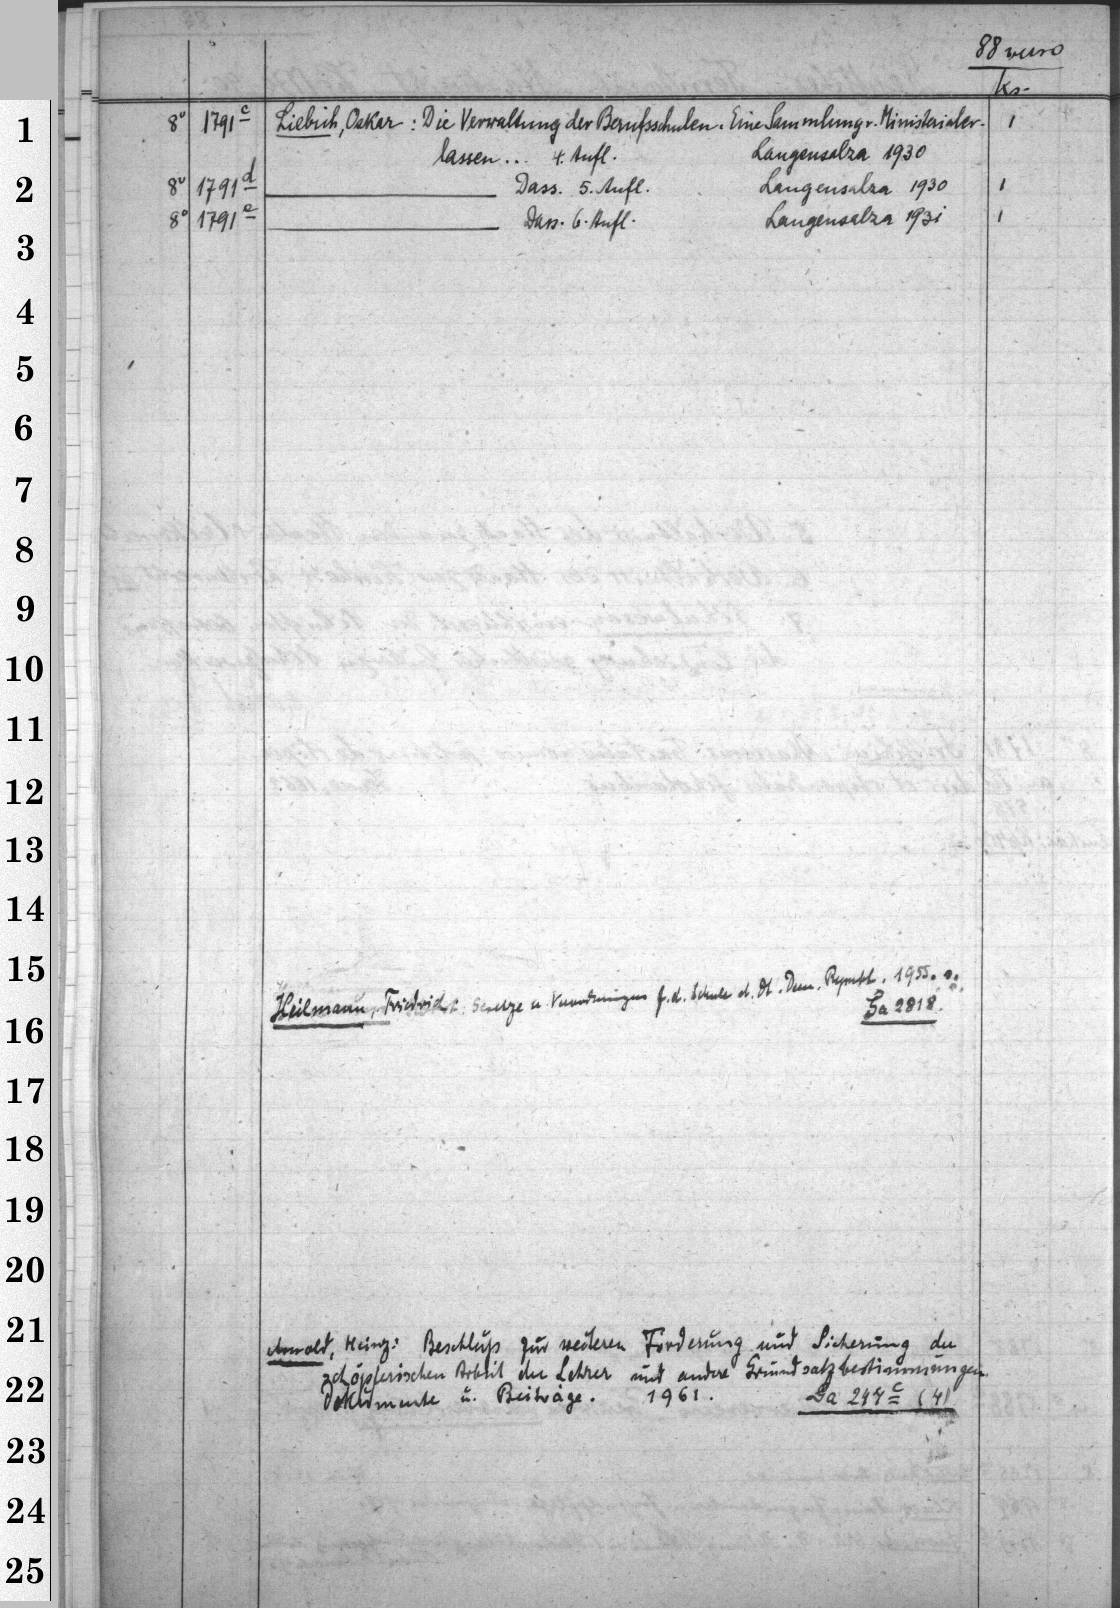 88 verso
Ks.
1 8° 1791 c Liebich, Oskar : Die Verwaltung der Berufsschulen. Eine Sammlung v. Ministerialer- 1
lassen... 4. Aufl. Langensalza 1930
2 8° 1791 d Dass. 5. Aufl. Langensalza 1930 1
8° 1791 e Dass. 6. Aufl. Langensalza 1931 1
3
4
5
6
7
8
9
10
11
12
13
14
15
Heilmann, Friedrich: Gesetze u. Verordnungen f. d. Schule d. Dt. Dem. Republ. 1955.
16 Da 2818.
17
18
19
20
21 Arnold, Heinz: Beschluß zur weiteren Förderung und Sicherung der
schöpferischen Arbeit der Lehrer und andere Grundsatzbestimmungen.
22 Dokumente u. Beiträge. 1961. Da 247 c (4)
23
24
25